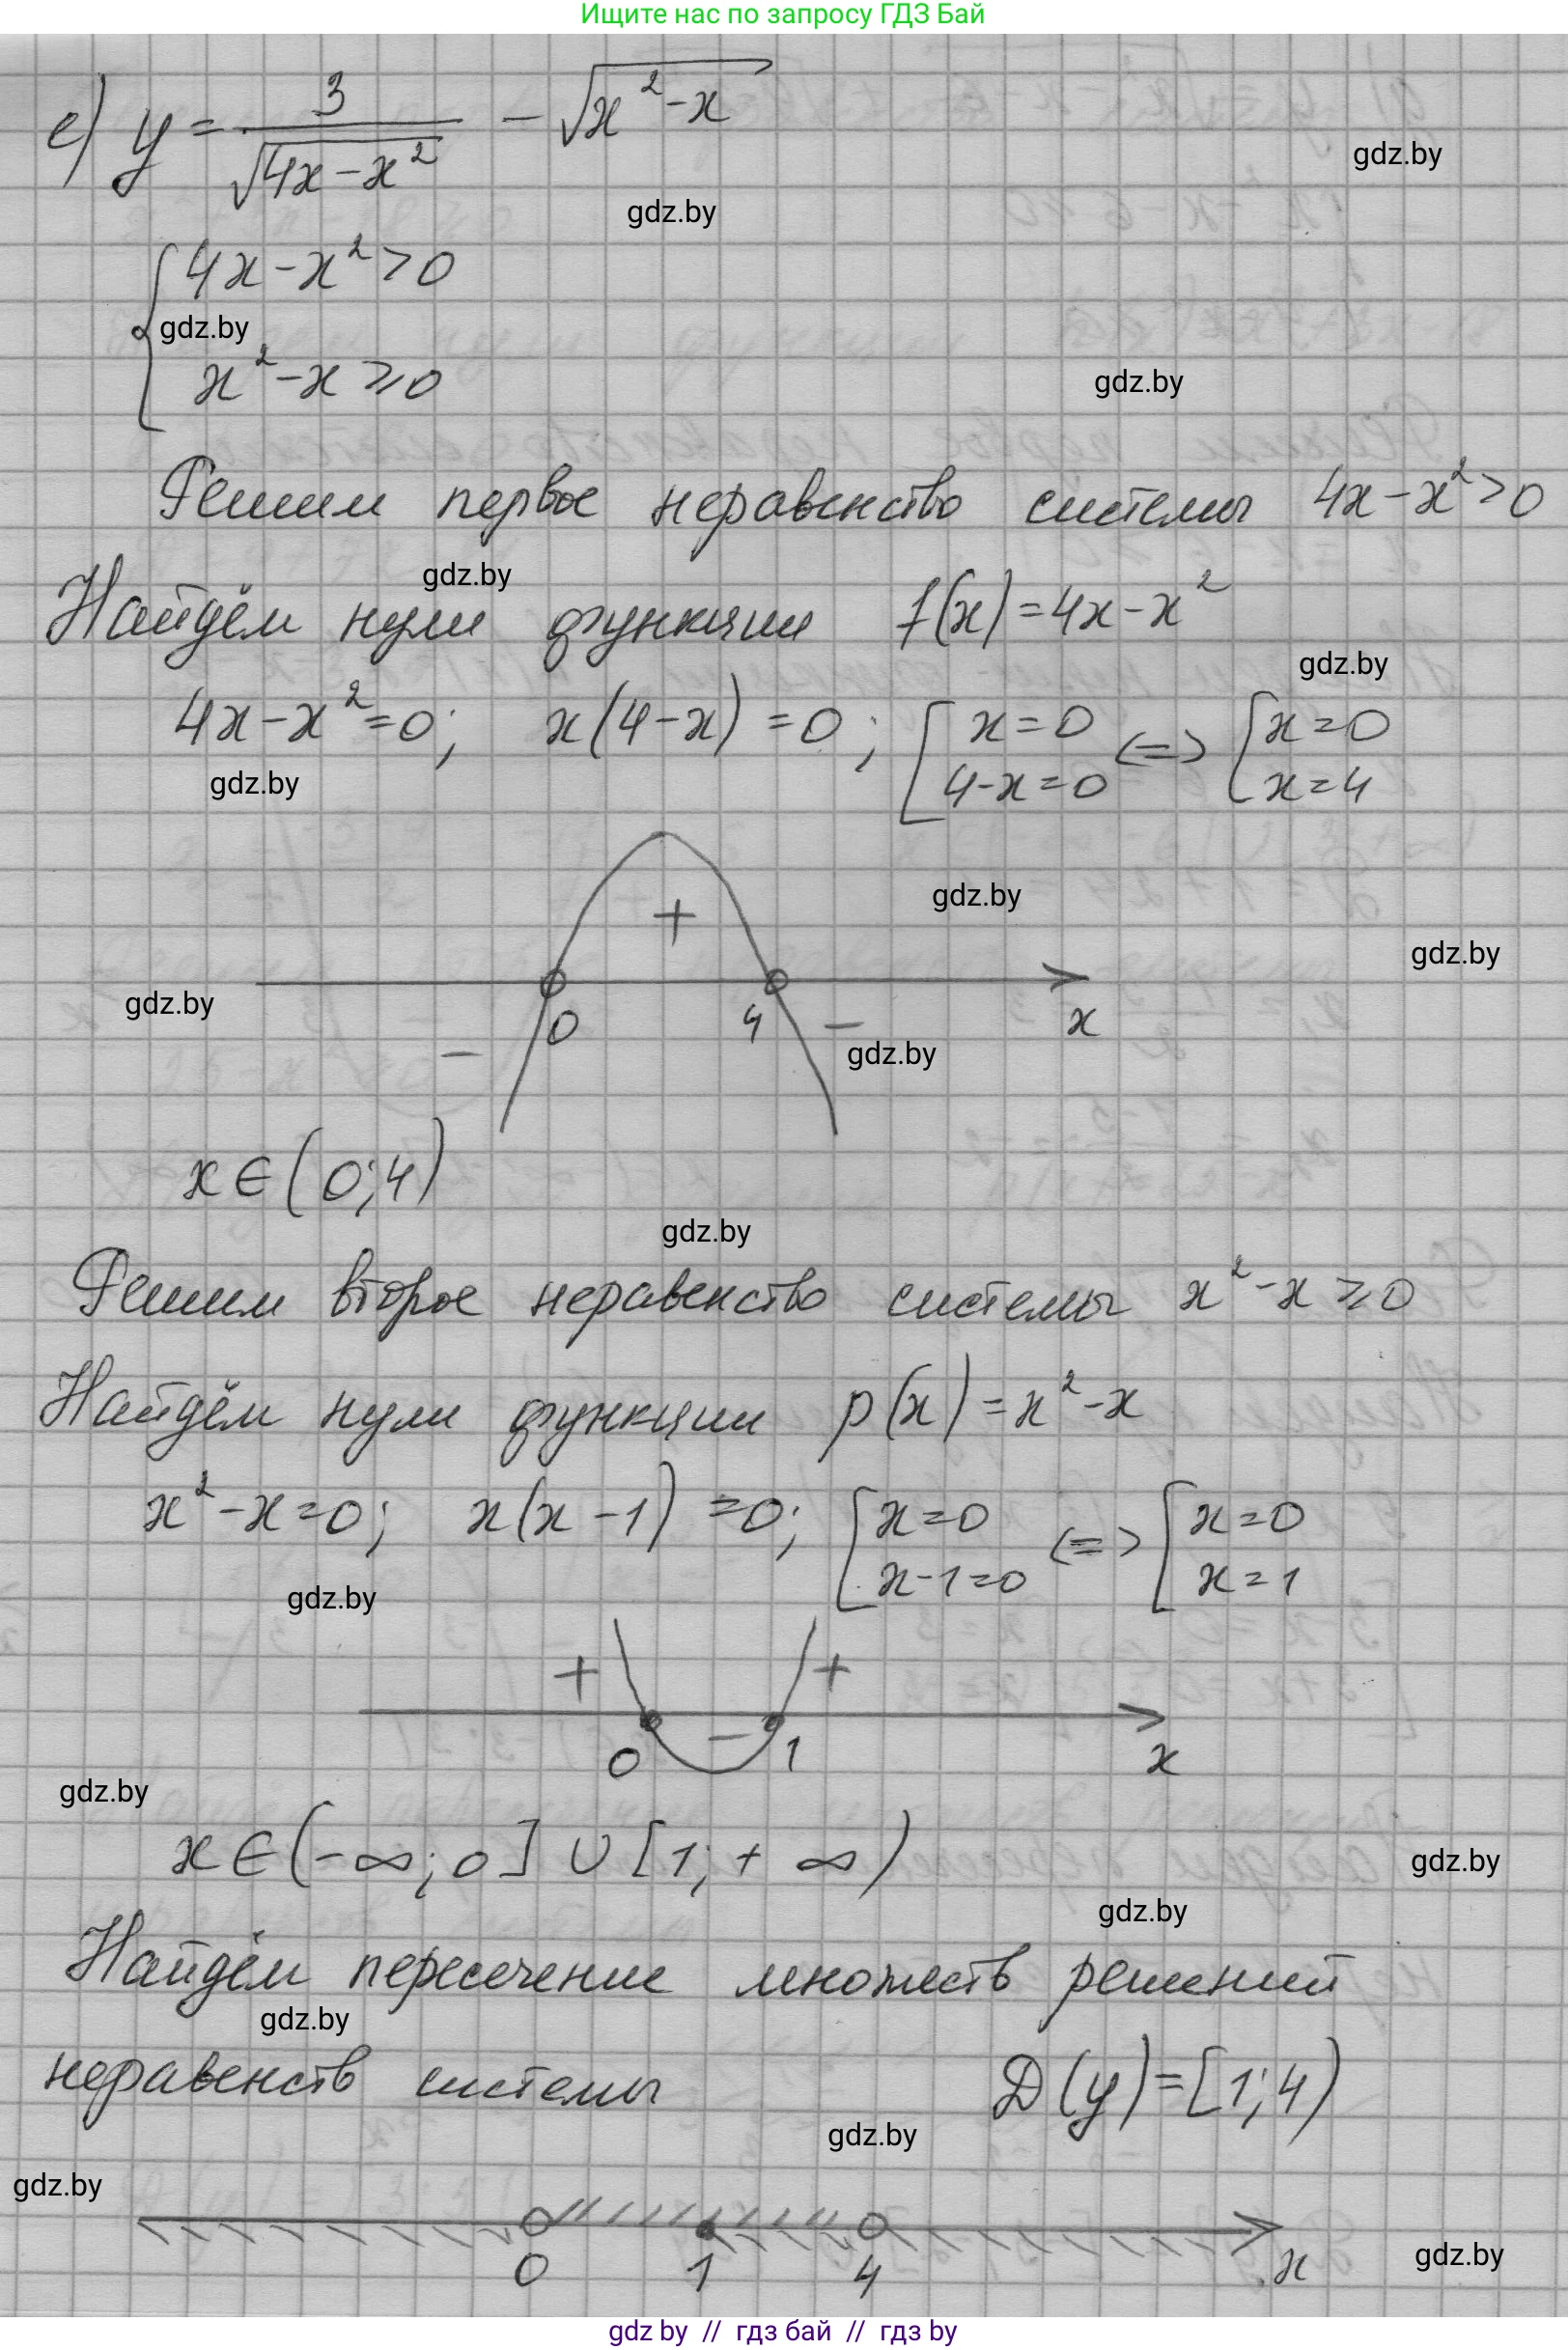 Ищите нас по запросу ГДЗ Бай
е) y = 3/√(4x-x²) - √(x²-x)
gdz.by
gdz.by
{ 4x-x²>0
gdz.by
x²-x⩾0
gdz.by
Решим первое неравенство системы 4x-x²>0
gdz.by
Найдём нули функции f(x)=4x-x²
gdz.by
4x-x²=0; x(4-x)=0; [ x=0 4-x=0 <=> [ x=0 x=4
gdz.by
+
gdz.by
gdz.by
gdz.by
0 4 x
- -
gdz.by
x∈(0;4)
gdz.by
Решим второе неравенство системы x²-x⩾0
Найдём нули функции p(x)=x²-x
x²-x=0; x(x-1)=0; [ x=0 x-1=0 <=> [ x=0 x=1
gdz.by
+ - +
0 1 x
gdz.by
x∈(-∞;0]∪[1;+∞)
gdz.by
gdz.by
Найдём пересечение множеств решений
gdz.by
неравенств системы D(y)=[1;4)
gdz.by
gdz.by
0 1 4 x
gdz.by
gdz by // гдз бай // гдз by